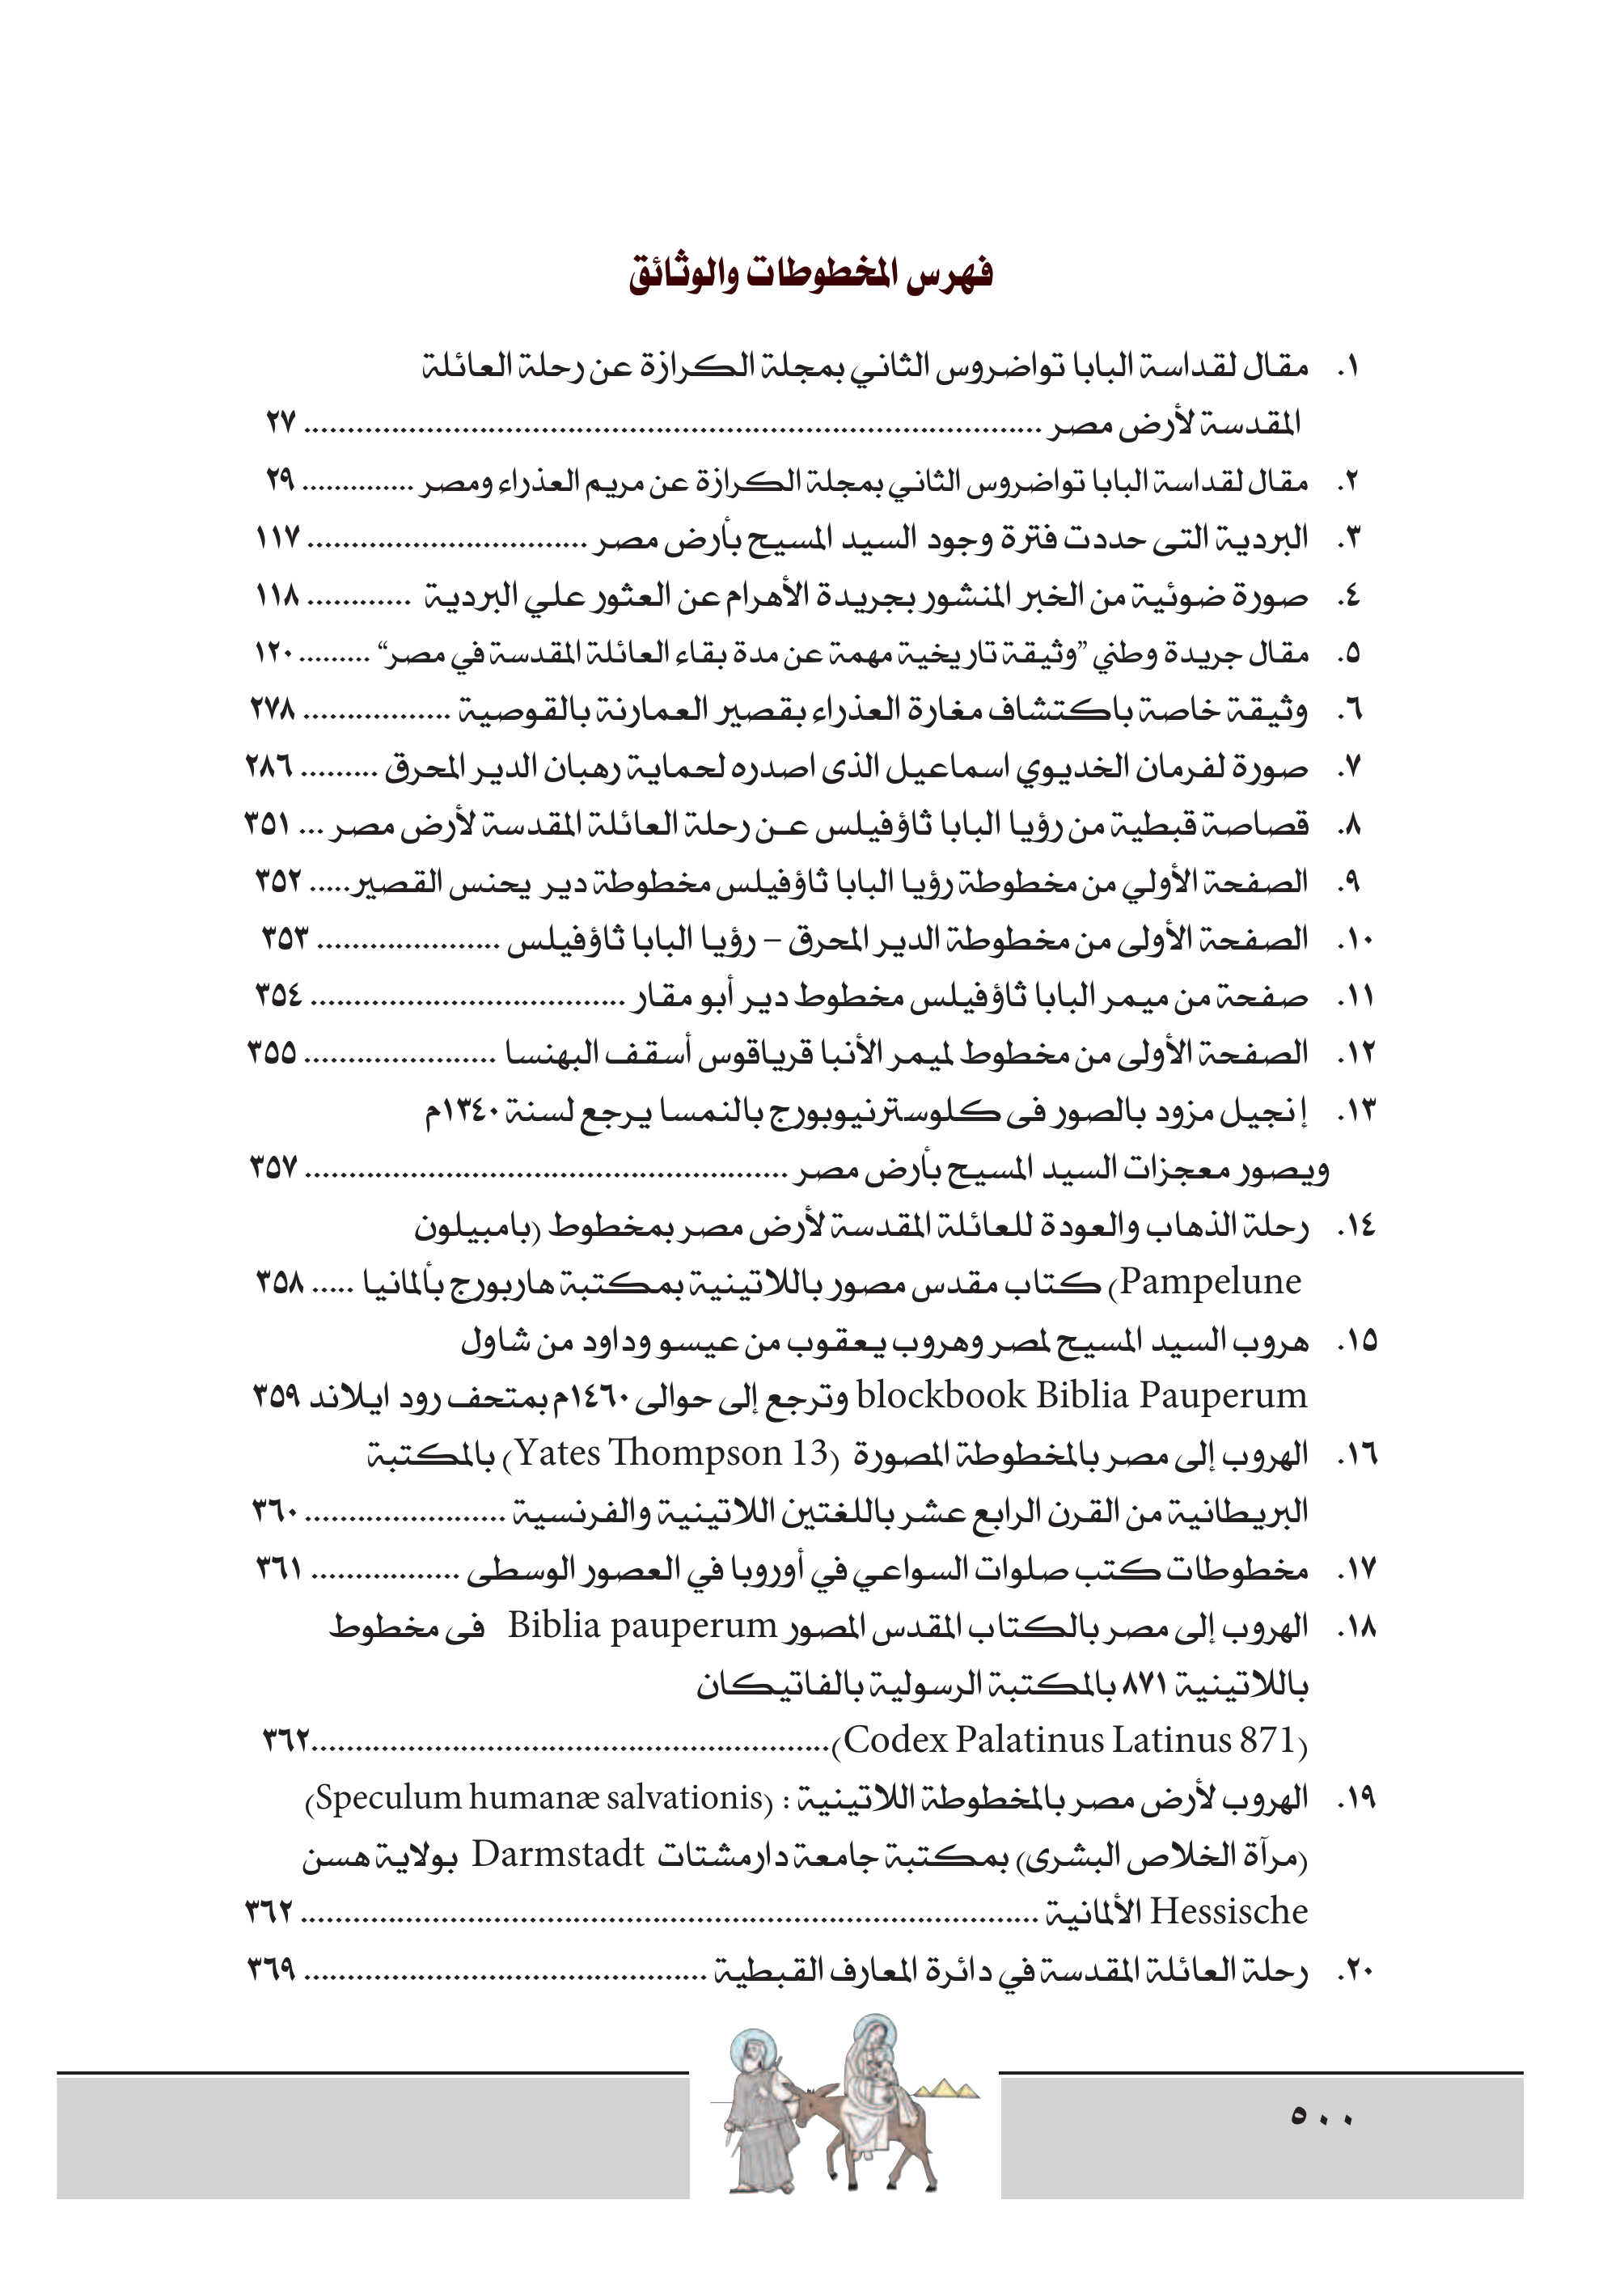 فهرس المخطوطات والوثائق
١. مقال لقداسة البابا تواضروس الثاني بمجلة الكرازة عن رحلة العائلة
المقدسة لأرض مصر .................................................................................... ٢٧
٢. مقال لقداسة البابا تواضروس الثاني بمجلة الكرازة عن مريم العذراء ومصر ............. ٢٩
٣. البردية التى حددت فترة وجود السيد المسيح بأرض مصر ................................ ١١٧
٤. صورة ضوئية من الخبر المنشور بجريدة الأهرام عن العثور علي البردية ............ ١١٨
٥. مقال جريدة وطني ”وثيقة تاريخية مهمة عن مدة بقاء العائلة المقدسة في مصر“ ......... ١٢٠
٦. وثيقة خاصة باكتشاف مغارة العذراء بقصير العمارنة بالقوصية ................. ٢٧٨
٧. صورة لفرمان الخديوي اسماعيل الذى اصدره لحماية رهبان الدير المحرق ......... ٢٨٦
٨. قصاصة قبطية من رؤيا البابا ثاؤفيلس عـن رحلة العائلة المقدسة لأرض مصر ... ٣٥١
٩. الصفحة الأولي من مخطوطة رؤيا البابا ثاؤفيلس مخطوطة دير يحنس القصير..... ٣٥٢
١٠. الصفحة الأولى من مخطوطة الدير المحرق – رؤيا البابا ثاؤفيلس ..................... ٣٥٣
١١. صفحة من ميمر البابا ثاؤفيلس مخطوط دير أبو مقار .................................... ٣٥٤
١٢. الصفحة الأولى من مخطوط لميمر الأنبا قرياقوس أسقف البهنسا ...................... ٣٥٥
١٣. إنجيل مزود بالصور فى كلوسترنيوبورج بالنمسا يرجع لسنة ١٣٤٠م
ويصور معجزات السيد المسيح بأرض مصر ....................................................... ٣٥٧
١٤. رحلة الذهاب والعودة للعائلة المقدسة لأرض مصر بمخطوط (بامبيلون
Pampelune) كتاب مقدس مصور باللاتينية بمكتبة هاربورج بألمانيا ..... ٣٥٨
١٥. هروب السيد المسيح لمصر وهروب يعقوب من عيسو وداود من شاول
blockbook Biblia Pauperum وترجع إلى حوالى ١٤٦٠م بمتحف رود ايلاند ٣٥٩
١٦. الهروب إلى مصر بالمخطوطة المصورة (Yates Thompson 13) بالمكتبة
البريطانية من القرن الرابع عشر باللغتين اللاتينية والفرنسية ....................... ٣٦٠
١٧. مخطوطات كتب صلوات السواعي في أوروبا في العصور الوسطى ................. ٣٦١
١٨. الهروب إلى مصر بالكتاب المقدس المصور Biblia pauperum فى مخطوط
باللاتينية ٨٧١ بالمكتبة الرسولية بالفاتيكان
(Codex Palatinus Latinus 871)...........................................................٣٦٢
١٩. الهروب لأرض مصر بالمخطوطة اللاتينية : (Speculum humanæ salvationis)
(مرآة الخلاص البشرى) بمكتبة جامعة دارمشتات Darmstadt بولاية هسن
Hessische الألمانية .................................................................................... ٣٦٢
٢٠. رحلة العائلة المقدسة في دائرة المعارف القبطية .............................................. ٣٦٩
٥٠٠